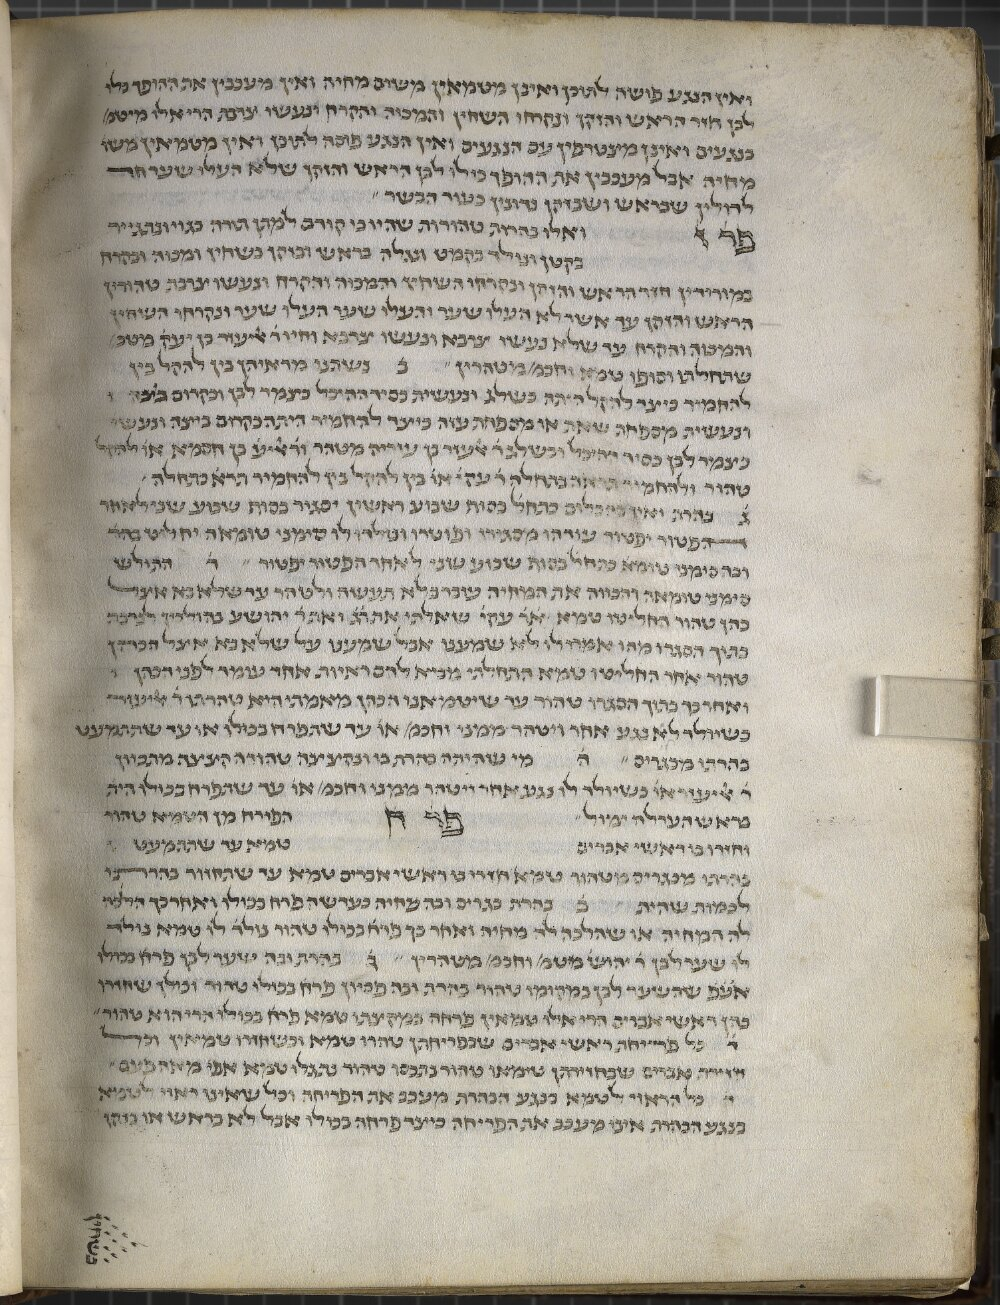 ואין הנגע פושה לתוכן ואינן מטמאין משום מחיה ואין מעכבין את ההופך כולו
לבן חזר הראש והזקן ונקרחו השחין והמכוה והקרח ונעשו צרבת הרי אלו מיטמ׳
בנגעים ואינן מצטרפין עם הנגעים ואין הנגע פוסה לתוכן ואין מטמאין משו
מחיה אבל מעכבין את ההופך כולו לבן הראש והזקן שלא העלו שער חד
לדולין שבראש ושבזקן נדונין כעור הבשר
פר ז ואלו בהרות טהורות שהיו בו קודם למתן תורה בגוי ונתגייר
בקטן ונולד בקמט ונגלה בראש ובזקן בשחין ומכוה ובקרח
במורידין חזר הראש והזקן ונקרחו השחין והמכוה והקרח ונעשו צרבת טהורין
הראש והזקן עד אשר לא העלו שער והעלו שער העלו שער ונקרחו השחין
והמכוה והקרח עד שלא נעשו צרבא ונעשו צרבא וחיו ר׳ אליעזר בן יעק׳ מטמ׳
שתחילתו וסופו טמא וחכמ׳ מטהרין ב נשתנו מראיהן בין להקל בין
להחמיר כיצד להקל היתה כשלג ונעשית כסיד ההיכל כצמר לבן וכקרום ביצה
ונעשית מספחת שאת או מספחת עזה כיצד להחמיר היתה כקרום ביצה ונעשי
כצמר לבן כסיד ההיכל וכשלג ר׳ אלעזר בן עזריה מטהר ור׳ אליע׳ בן חסמא או להקל
טהור ולהחמיר תראה בתחלה ר׳ עקי׳ או׳ בין להקל בין להחמיר תרא כתחלה
ג בהרת ואין בה כלום בתחל׳ בסוף שבוע ראשון יסגיר בסוף שבוע שני לאחר
הפטור יפטור עודהו מסגירו ופוטרו ונולדו לו סימני טומאה יחליט בהר
ובה סימני טומא׳ בתחל׳ בסוף שבוע שני לאחר הפטור יפטור ד התולש
סימני טומאה והכווה את המחיה עובר בלא תעשה ולטהר עד שלא בא אצל
כהן טהור החליטו טמא א׳ר׳ עקי׳ שאלתי את ר״ג ואת ר׳ יהושע בהולכין לנרבת
בתוך הסגרו מהו אמרו לו לא שמענו אבל שמענו על שלא בא אצל הכהן
טהור אחר החליטו טמא התחלתי מביא להם ראיות אחד עומד לפני הכהן
ואחר כך בתוך הסגרו טהור עד שיטמיאנו הכהן מאמתי היא טהרתו ר׳ אליעזר
כשיולד לא נגע אחר ויטהר ממנו וחכמ׳ או׳ עד שהפרח בכולו או עד שתתמעט
בהרתו מכגריס ה מי שהיתה בהרת בו ונקצצה טהורה קצצה מתכוין
ר׳ אליעזר או׳ כשיולד לו נגע אחר ויטהר ממנו וחכמ׳ או׳ עד שהפרח בכולו היה
בראש הערלה ימול פר ח הפורח מן הטמא טהור
וחזרו בו ראשי אברים טמא עד שתתמעט
בהרתו מכגריס מטהור טמא חזרו בו ראשי אברים טמא עד שתחזור בהרתו
לכמות שהית׳ ב בהרת כגריס ובה מחיה כעדשה פרח בכולו ואחר כך הלכה
לה המחיה או שהלכה לה מחיה ואחר כך פרח בכולו טהור נולד לו טמא נולד
לו שער לבן ר׳ יהוש׳ מטמ׳ וחכמ׳ מטהרין ג בהרת ובה שער לבן פרח בכולו
אע״פ שהשער לבן במקומו טהור בהרת ובה פסיון פרח בכולו טהור וכולן שחזרו
בהן ראשי אברים הרי אלו טמאין פרחה במקצתו טמא פרח בכולו הרי הוא טהור
ד כל פריחת ראשי אברים שבפריחתן טהרו טמא וכשחזרו טמאין וכל
חזירת אברים שבחזירתן טימאו טהור נתכסו טהור נתגלו טמא אפי׳ מאה פעם
ה כל הראוי לטמא בנגע הבהרת מעכב את הפריחה וכל שאינו ראוי לטמא
בנגע הבהרת אינו מעכב את הפריחה כיצד פרחה בכולו אבל לא בראש או בזקן
בשחין